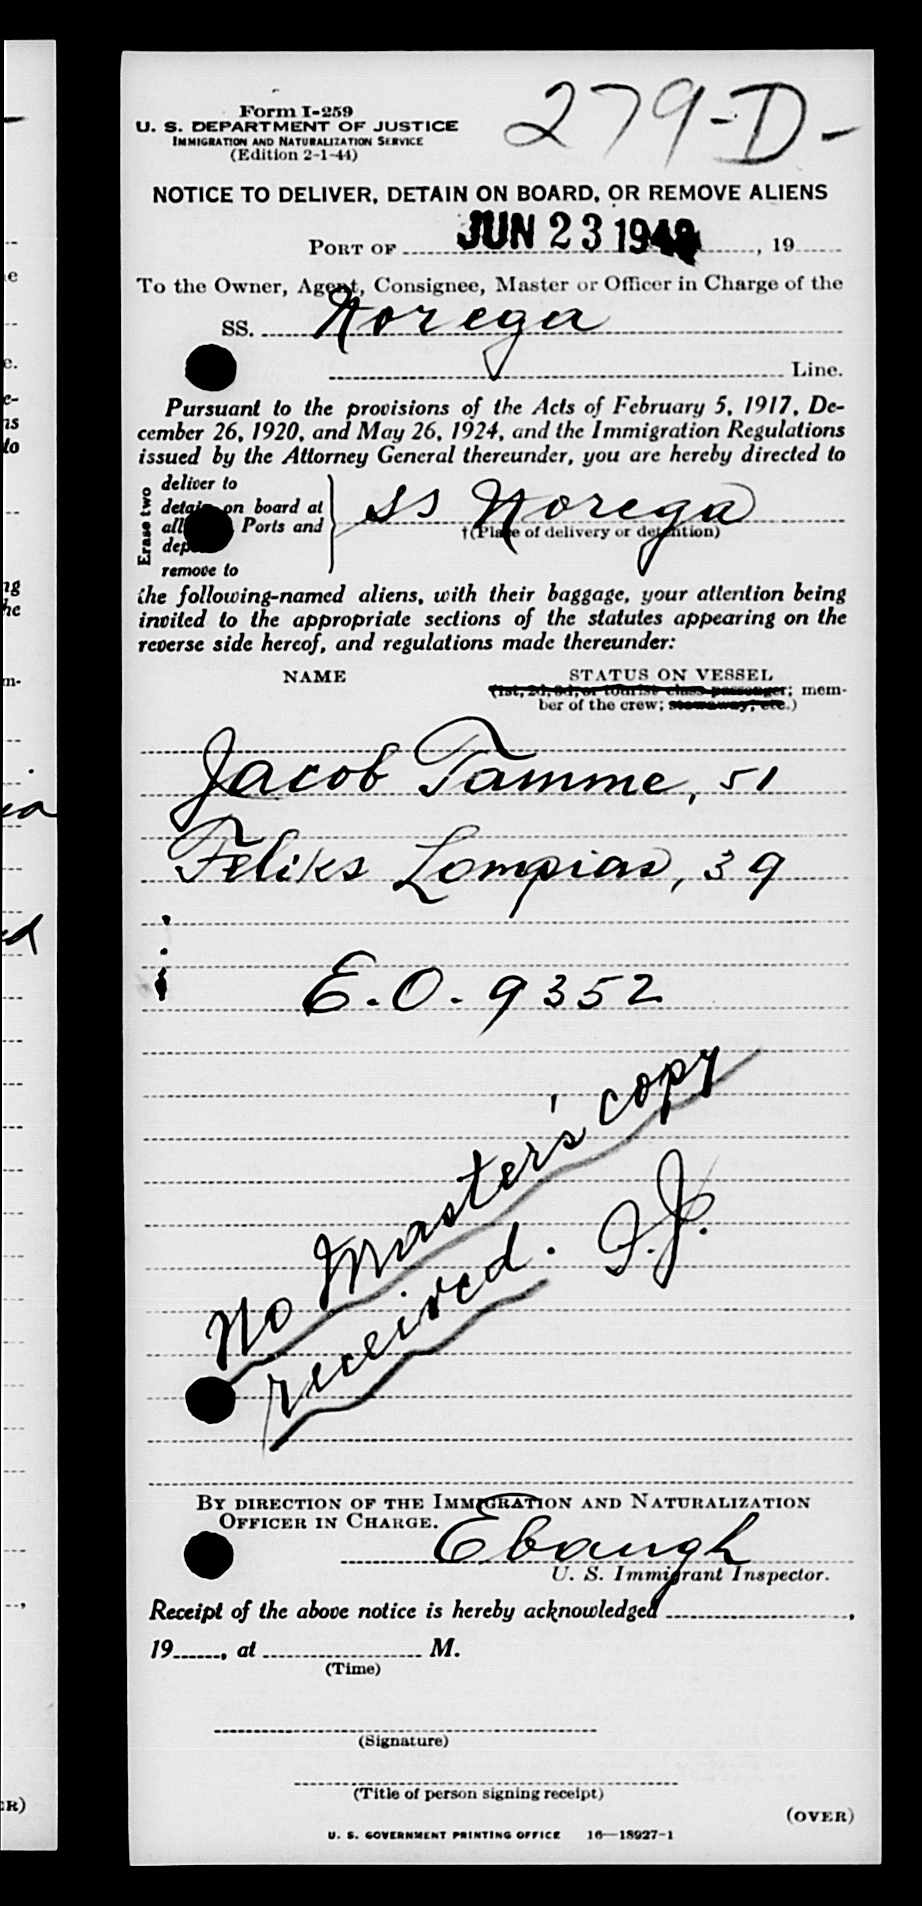 279-D-
Form I-259
U. S. DEPARTMENT OF JUSTICE
IMMIGRATION AND NATURALIZATION SERVICE
(Edition 2-1-44)
NOTICE TO DELIVER, DETAIN ON BOARD, OR REMOVE ALIENS
PORT OF JUN 23 194 , 19
To the Owner, Agent, Consignee, Master or Officer in Charge of the
SS. Norega
Line.
Pursuant to the provisions of the Acts of February 5, 1917, De-
cember 26, 1920, and May 26, 1924, and the Immigration Regulations
issued by the Attorney General thereunder, you are hereby directed to
Erase two
deliver to
detain on board at
all Ports and
remove to
SS Norega
†(Place of delivery or detention)
the following-named aliens, with their baggage, your attention being
invited to the appropriate sections of the statutes appearing on the
reverse side hereof, and regulations made thereunder:
NAME STATUS ON VESSEL
(1st, 2d, 3d, or tourist class passenger; mem-
ber of the crew; stowaway, etc.)
Jacob Tamme, 51
Feliks Lompias, 39
E.O. 9352
No Master's copy
received. I.J.
BY DIRECTION OF THE IMMIGRATION AND NATURALIZATION
OFFICER IN CHARGE.
Ebaugh
U. S. Immigrant Inspector.
Receipt of the above notice is hereby acknowledged ,
19 , at M.
(Time)
(Signature)
(Title of person signing receipt)
(OVER)
U. S. GOVERNMENT PRINTING OFFICE 16—18927-1